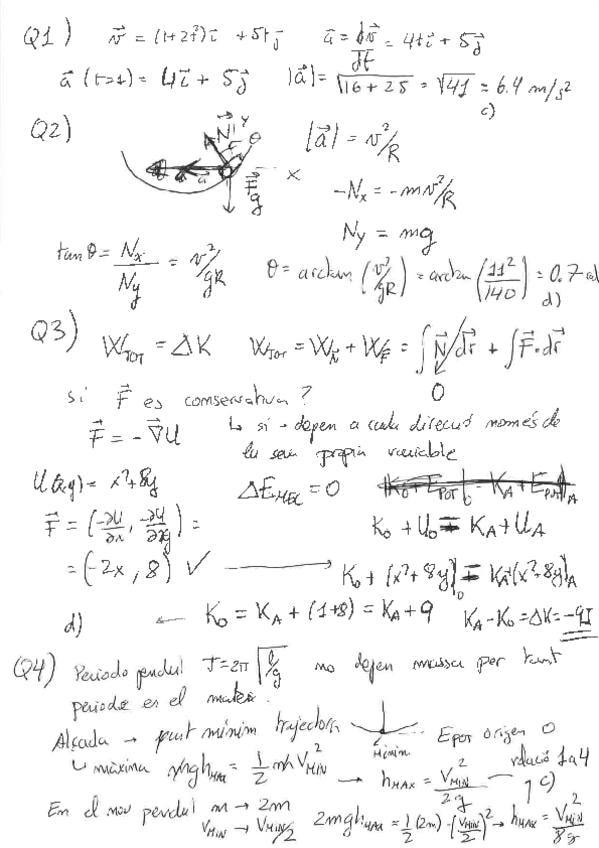 Q1) v⃗ = (1+2t²)i⃗ + 5t j⃗   a⃗ = dv⃗/dt = 4t i⃗ + 5 j⃗
a⃗ (t=1) = 4i⃗ + 5j⃗   |a⃗| = √16+25 = √41 = 6.4 m/s²
c)
Q2) N⃗ y θ a⃗ x F⃗g |a⃗| = v²/R
-Nx = -mv²/R
Ny = mg
tanθ = Nx/Ny = v²/gR   θ = arctan (v²/gR) = arctan (11²/140) = 0.7 rad
d)
Q3) W_TOT = ΔK   W_TOT = W_N⃗ + W_F⃗ = ∫N⃗ dr⃗ + ∫F⃗·dr⃗
0
si F⃗ es conservativa?
F⃗ = -∇⃗U   ↳ si → depen a cada direcció només de
la seva propia variable
U(x,y) = x²+8y   ΔE_MEC = 0   K0 + EPOT|0 = KA + EPOT|A
F⃗ = (-∂U/∂x, -∂U/∂y) =   K0 + U0 = KA + UA
= (-2x, 8) ✓ → K0 + (x²+8y)|0 = KA+(x²+8y)|A
d) ← K0 = KA + (1+8) = KA + 9   KA - K0 = ΔK = -9J
Q4) Periode pendul T = 2π √l/g no depen massa per tant
periode es el mateix.
Alçada → punt mínim trajectoria mínim Epot origen 0
↳ màxima mghMAX = 1/2 m VMIN² → hMAX = VMIN²/2g relació 1 a 4
c)
En el nou pendul m → 2m
VMIN → VMIN/2   2mghMAX = 1/2 (2m)·(VMIN/2)² → hMAX = VMIN²/8g